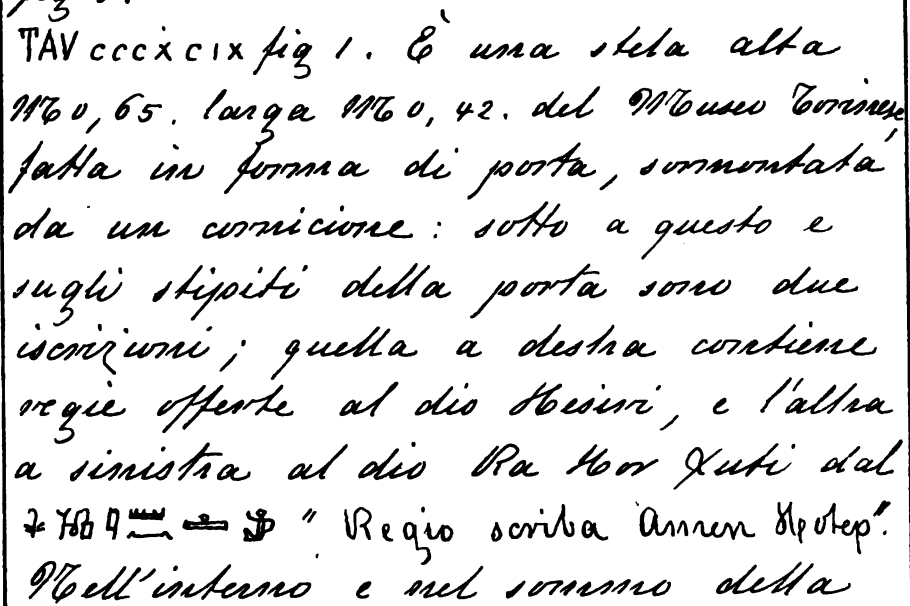 TAV CCCXCIX fig 1. È una stela alta
M 0,65. larga M 0,42. del Museo Torinese,
fatta in forma di porta, sormontata
da un cornicione: sotto a questo e
sugli stipiti della porta sono due
iscrizioni; quella a destra contiene
regie offerte al dio Hesiri, e l'altra
a sinistra al dio Ra Hor Xuti dal
" Regio scriba Amen Hotep".
Nell'interno e nel sommo della